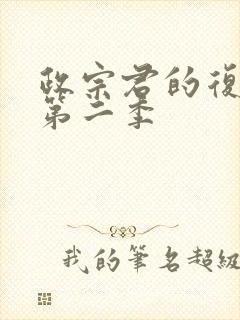 政宗君的復
第二季
我的筆名超級